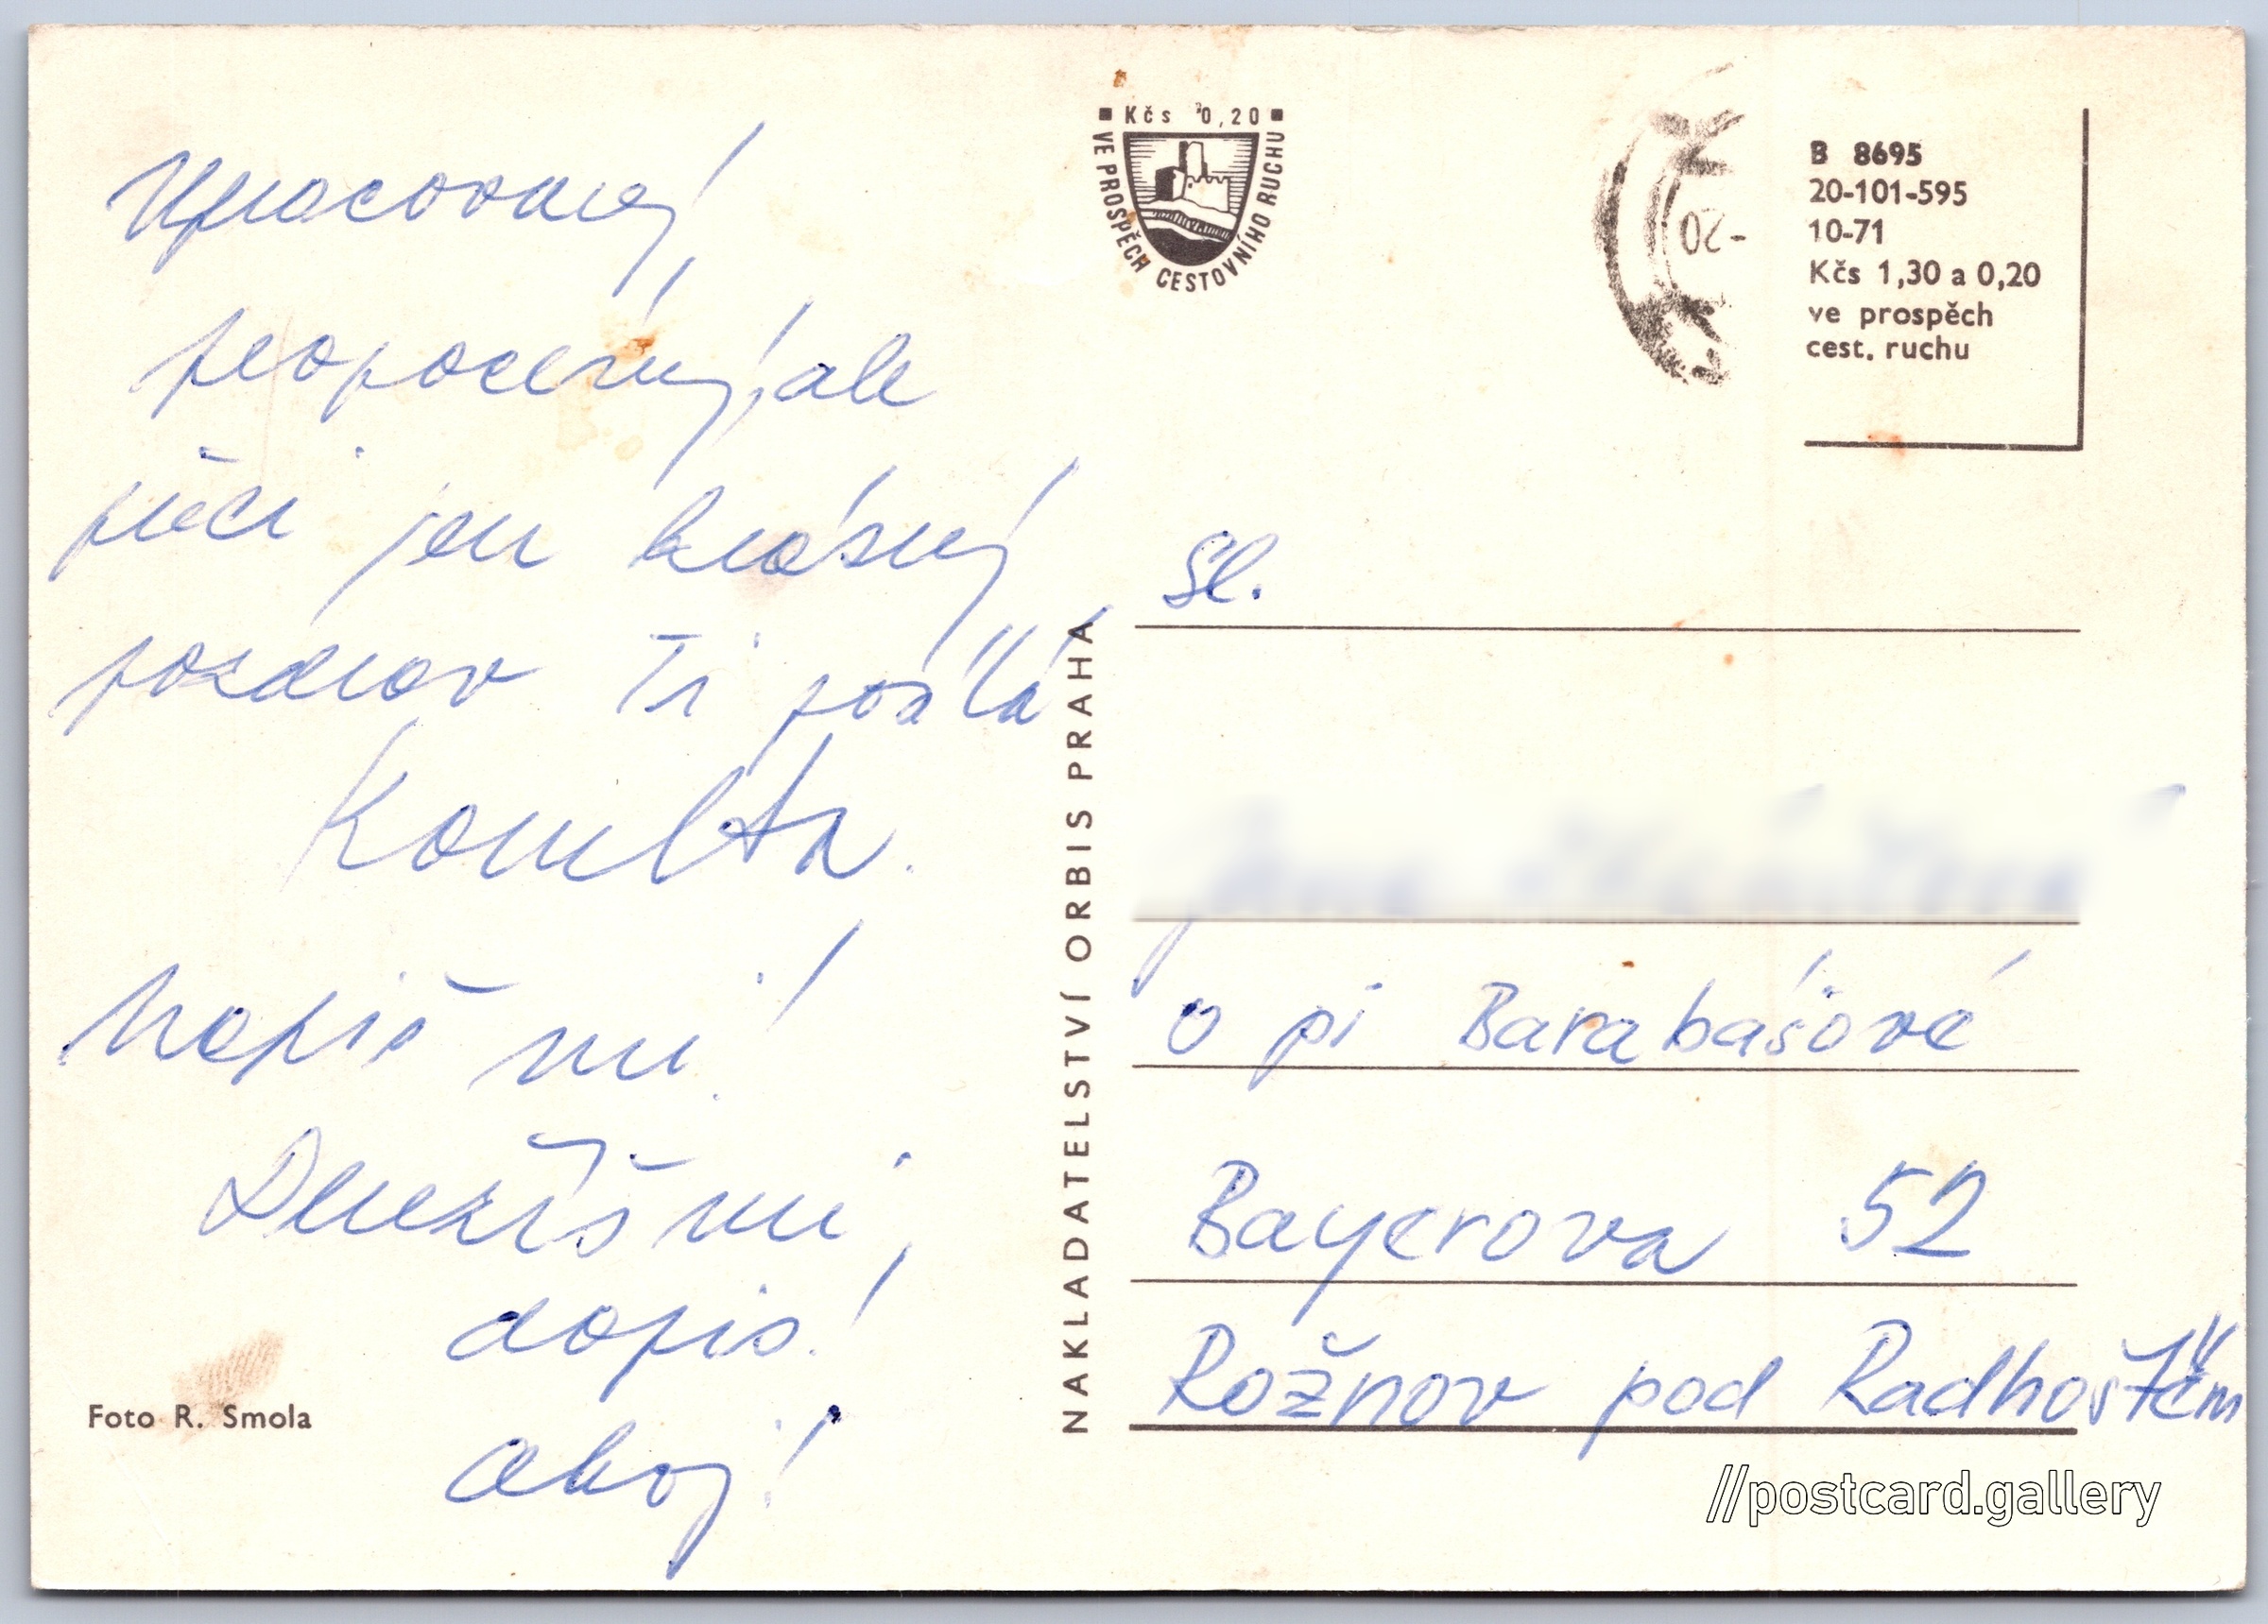 Upracovaný,
propocený, ale
přeci jen krásný
pozdrav Ti posílá
Kamila.
Napiš mi!
Dlužíš mi,
dopis!
ahoj!
Foto R. Smola
Kčs 0,20
VE PROSPĚCH CESTOVNÍHO RUCHU
NAKLADATELSTVÍ ORBIS PRAHA
-20
B 8695
20-101-595
10-71
Kčs 1,30 a 0,20
ve prospěch
cest. ruchu
Sl.
u pí Barabášové
Bayerova 52
Rožnov pod Radhoštěm
//postcard.gallery